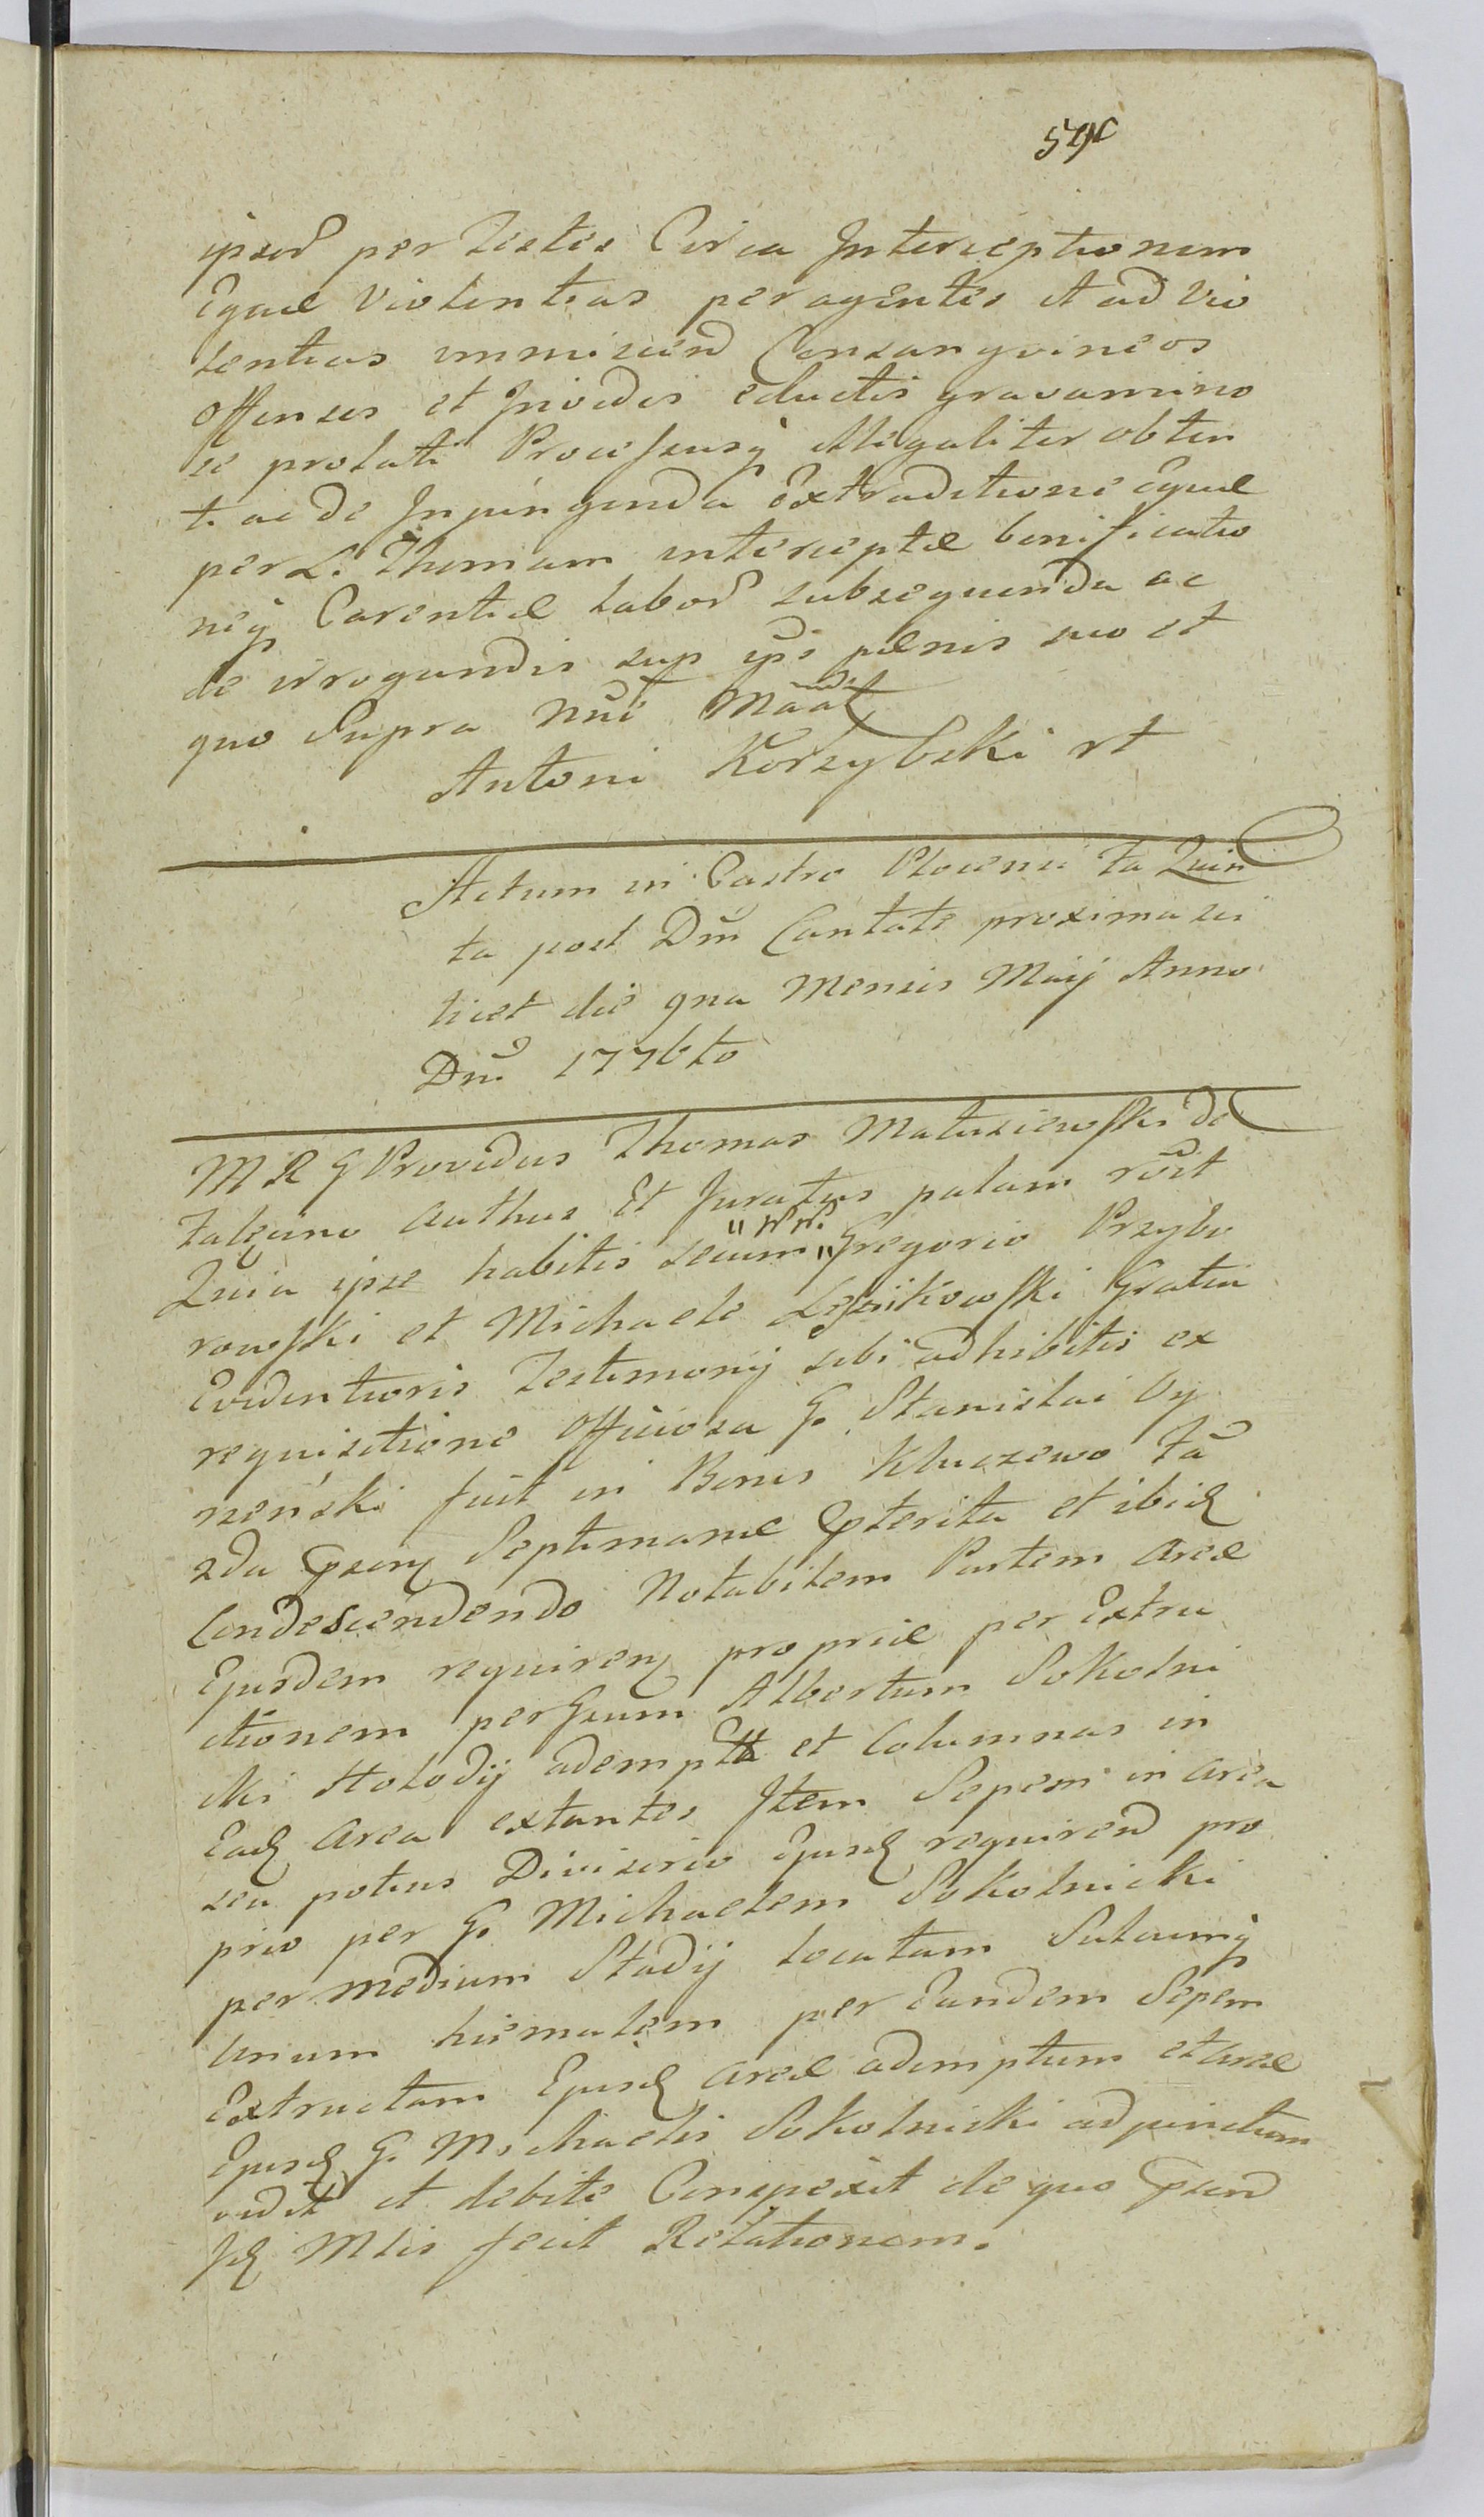 ipsor per testes Circa Interceptionem
Equae Violentias peragentes et ad Vio
lentias immiscend Consangvineos
offenses et Invidis eductis gravamino
se prolati Processusq illegaliter obten
ti ac de Inpingenda Extraditione Equae
per L. Thomam interceptae bonificatio
neq Carentiae labor subsequenda ac
de irrogandis sup ipsis paenis suo et
quo Supra Nni Maat
Antoni Korzybski rt
Actum in Castro Plocensi fa Quin
ta post Dm Cantate proxima sci
licet die 9na Mensis Maij Anno
Dni 1776to
M R G Providus Thomas Matusiewski de
authus Et Juratus palam rcit
Quia ipse habitis secum "nn." Gregorio Przybo
rowski et Michaele Gratia
Evidentioris Testimonij sibi adhibitis ex
requisitione officiosa G. Stanislai Cy
zenski fuit in Bonis Kluczewo fa
2da Septimanae pterita et ibid
Condescendendo Notabilem Partem areae
Ejusdem requiren propriae per Extru
ctionem per Gsum Albertum Sokolni
cki Stodoly ademptā et Columnas in
Ead area extantes Item Sepem in area
seu potius Divisorio Ejusd requirend pro
prio per G. Michaelem Sokolnicki
per medium Stadij locatam Sulcumq
unum hiemalem per Eandem Sepem
Extructam Ejusd areae ademptum et areae
Ejusd G. Michaelis Sokolnicki adjunctum
vidit et debite Conspexit de quo psend
Id Mtis fecit Relationem.